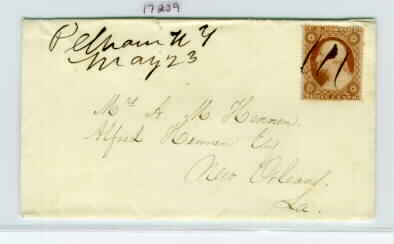 17209
Pelham N Y
May 23
Mrs A. M Hennen.
Alfred Hennen Esq
New Orleans,
La.